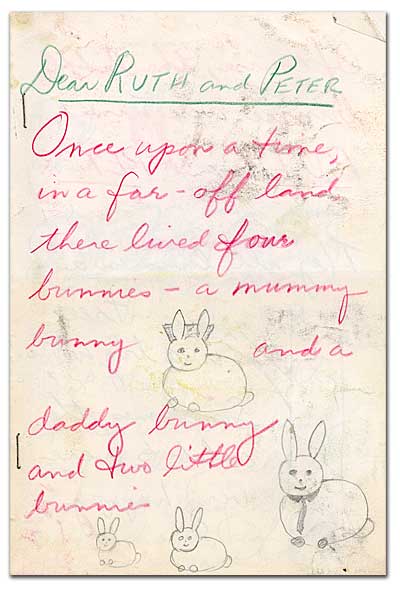 Dear RUTH and PETER
Once upon a time,
in a far-off land
there lived four
bunnies - a mummy
bunny and a
daddy bunny
and two little
bunnies